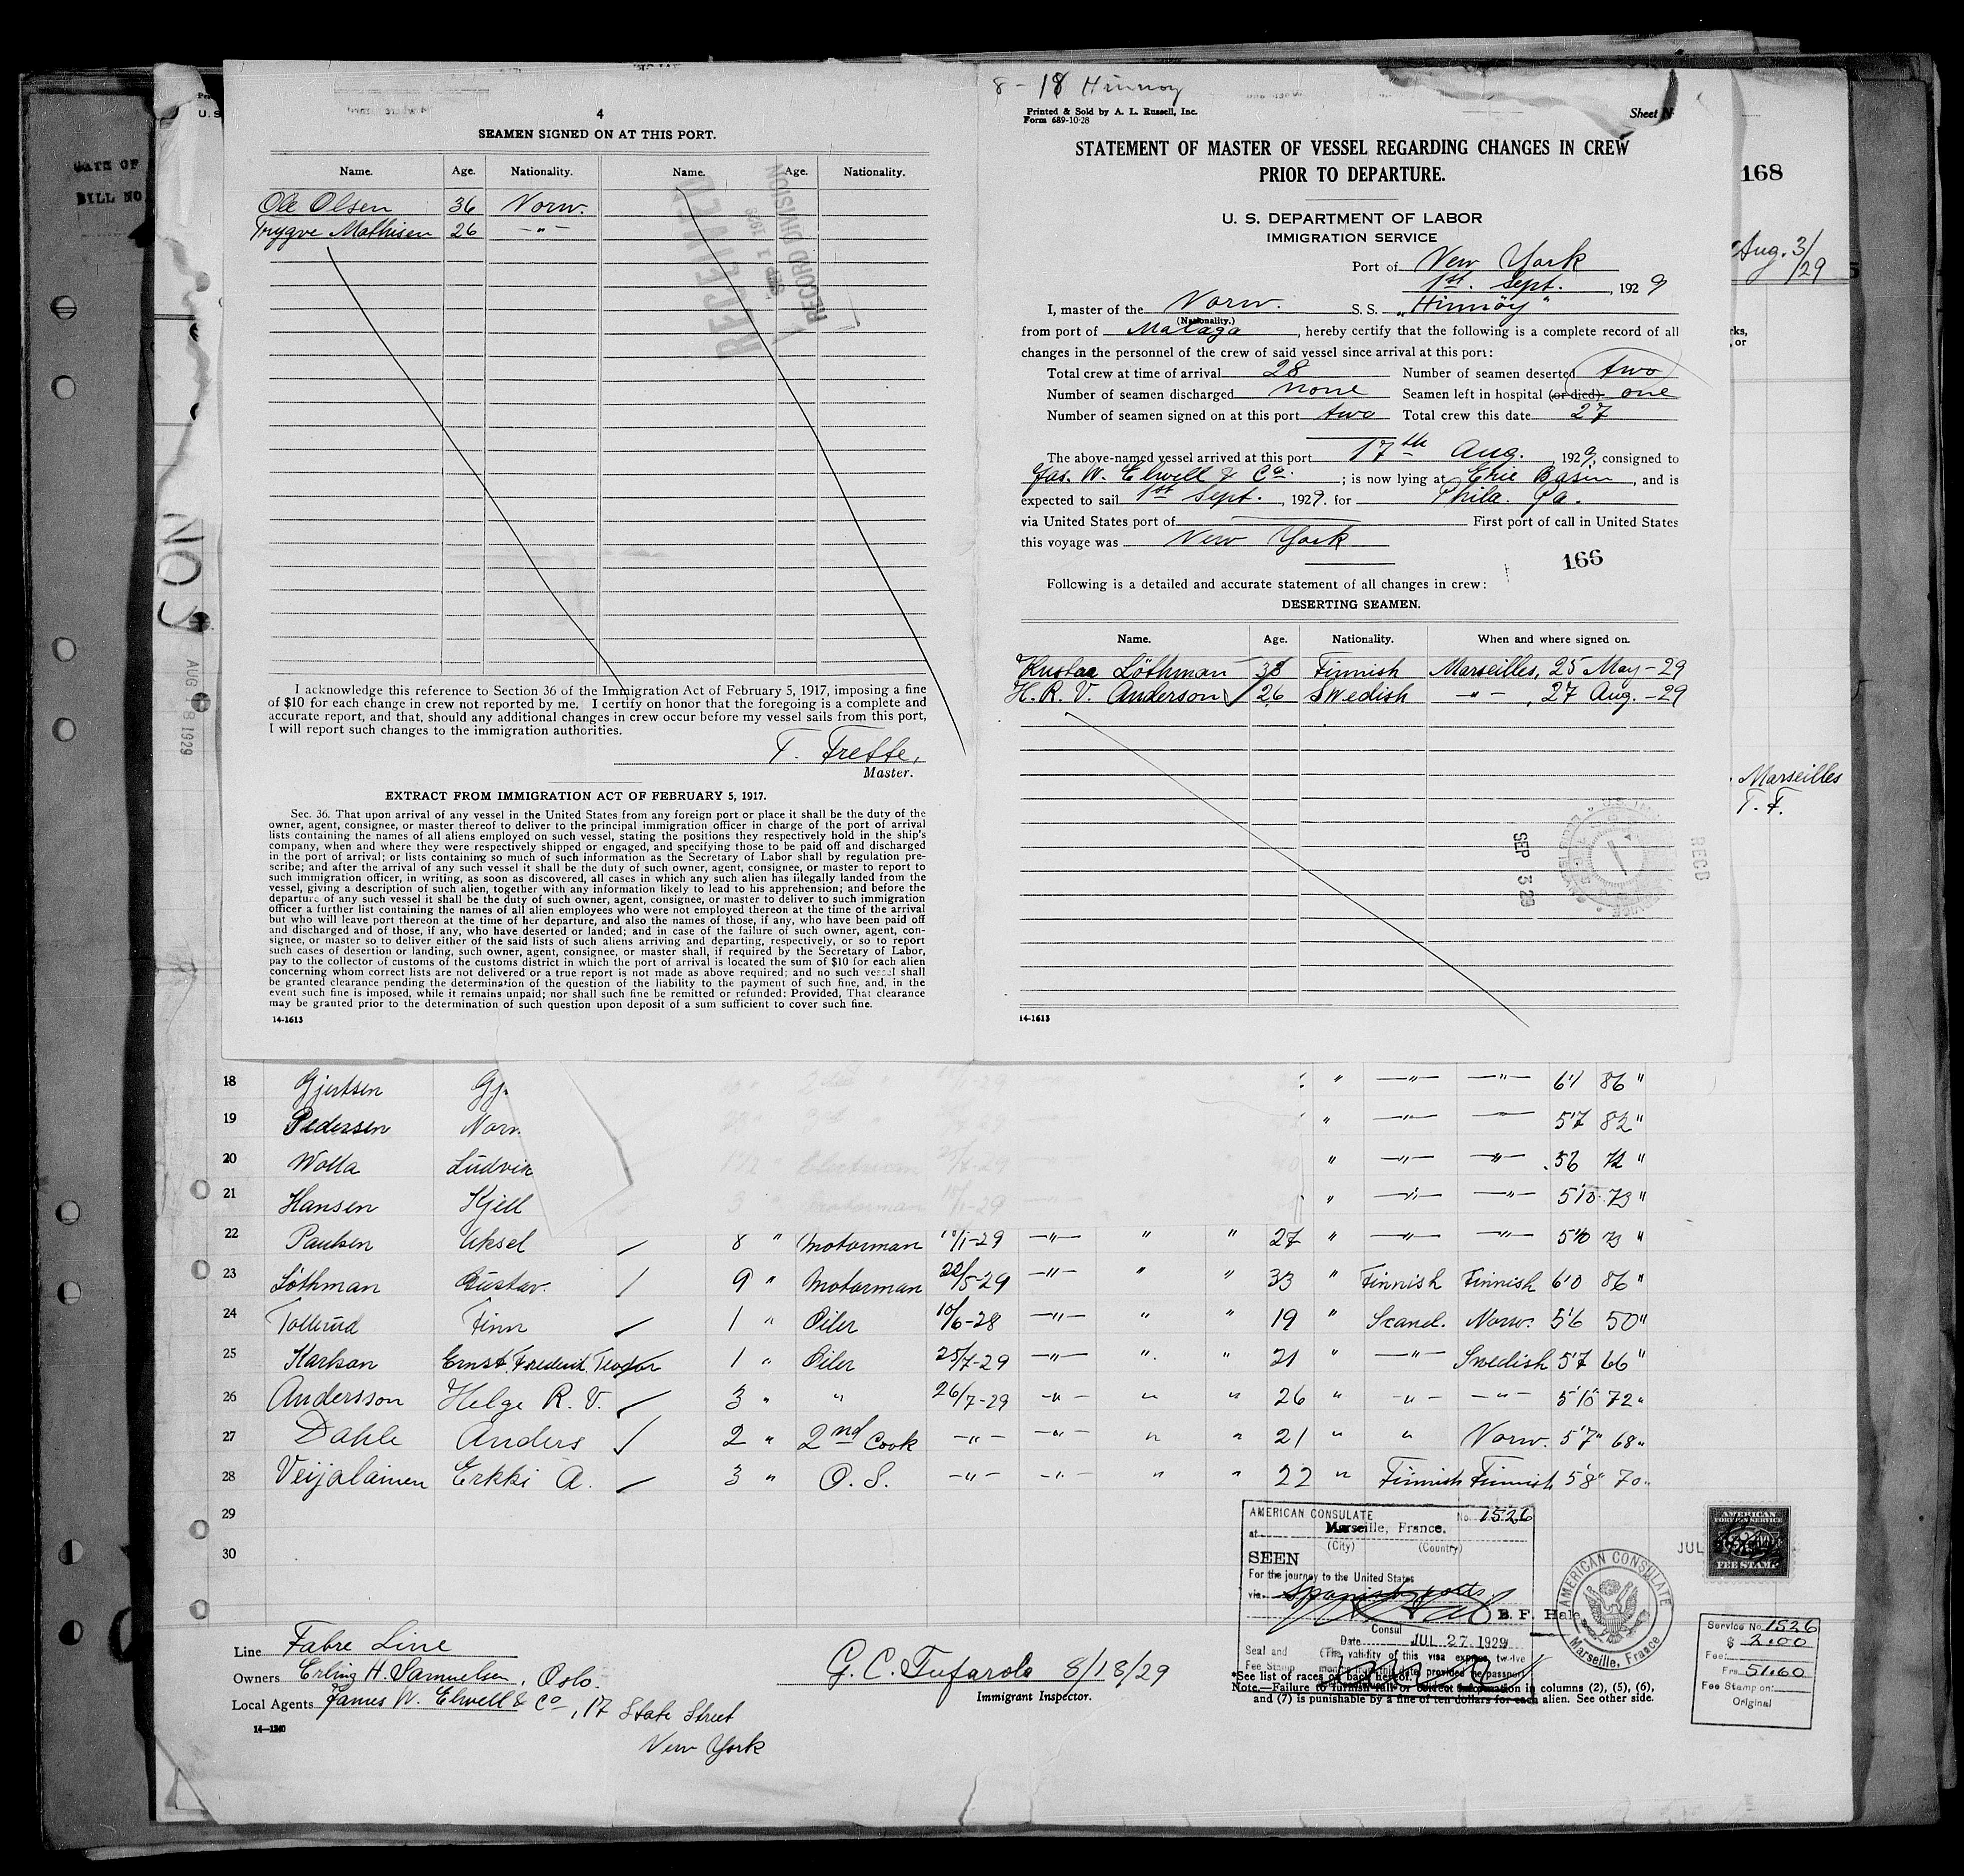 4
SEAMEN SIGNED ON AT THIS PORT.
Name. Age. Nationality. Name. Age. Nationality.
Ole Olsen 36 Norw.
Trygve Mathisen 26 —"—
RECEIVED
SEP 1 1929
RECORD DIVISION
I acknowledge this reference to Section 36 of the Immigration Act of February 5, 1917, imposing a fine
of $10 for each change in crew not reported by me. I certify on honor that the foregoing is a complete and
accurate report, and that, should any additional changes in crew occur before my vessel sails from this port,
I will report such changes to the immigration authorities.
T. Frette,
Master.
EXTRACT FROM IMMIGRATION ACT OF FEBRUARY 5, 1917.
Sec. 36. That upon arrival of any vessel in the United States from any foreign port or place it shall be the duty of the
owner, agent, consignee, or master thereof to deliver to the principal immigration officer in charge of the port of arrival
lists containing the names of all aliens employed on such vessel, stating the positions they respectively hold in the ship's
company, when and where they were respectively shipped or engaged, and specifying those to be paid off and discharged
in the port of arrival; or lists containing so much of such information as the Secretary of Labor shall by regulation pre-
scribe; and after the arrival of any such vessel it shall be the duty of such owner, agent, consignee, or master to report to
such immigration officer, in writing, as soon as discovered, all cases in which any such alien has illegally landed from the
vessel, giving a description of such alien, together with any information likely to lead to his apprehension; and before the
departure of any such vessel it shall be the duty of such owner, agent, consignee, or master to deliver to such immigration
officer a further list containing the names of all alien employees who were not employed thereon at the time of the arrival
but who will leave port thereon at the time of her departure, and also the names of those, if any, who have been paid off
and discharged and of those, if any, who have deserted or landed; and in case of the failure of such owner, agent, con-
signee, or master so to deliver either of the said lists of such aliens arriving and departing, respectively, or so to report
such cases of desertion or landing, such owner, agent, consignee, or master shall, if required by the Secretary of Labor,
pay to the collector of customs of the customs district in which the port of arrival is located the sum of $10 for each alien
concerning whom correct lists are not delivered or a true report is not made as above required; and no such vessel shall
be granted clearance pending the determination of the question of the liability to the payment of such fine, and, in the
event such fine is imposed, while it remains unpaid; nor shall such fine be remitted or refunded: Provided, That clearance
may be granted prior to the determination of such question upon deposit of a sum sufficient to cover such fine.
14-1613
8 - 18 Hinnoy
Printed & Sold by A. L. Russell, Inc.
Form 689-10-28
Sheet N
STATEMENT OF MASTER OF VESSEL REGARDING CHANGES IN CREW
PRIOR TO DEPARTURE.
U. S. DEPARTMENT OF LABOR
IMMIGRATION SERVICE
Port of New York
1st. Sept., 1929
I, master of the Norw. S. S. "Hinnöy"
(Nationality.)
from port of Malaga, hereby certify that the following is a complete record of all
changes in the personnel of the crew of said vessel since arrival at this port:
Total crew at time of arrival 28 Number of seamen deserted two
Number of seamen discharged none Seamen left in hospital (or died) one
Number of seamen signed on at this port two Total crew this date 27
The above-named vessel arrived at this port 17th Aug., 1929, consigned to
Jas. W. Elwell & Co. ; is now lying at Erie Basin, and is
expected to sail 1st Sept., 1929. for Phila. Pa.
via United States port of First port of call in United States
this voyage was New York
166
Following is a detailed and accurate statement of all changes in crew:
DESERTING SEAMEN.
Name. Age. Nationality. When and where signed on.
Kustaa Löthman 33 Finnish Marseilles, 25 May-29
H. R. V. Anderson 26 Swedish —"—, 27 Aug.-29
SEP 3 29
RECD
14-1613
168
Aug. 3/29
Marseilles
T. F.
NOJ
AUG 18 1929
18 Gjertsen Gj. " —"— —"— 6'1 86"
19 Pedersen Norm. " —"— — 5'7 82"
20 Wolla Ludvik " —"— —"— 5'6 72"
21 Hansen Kjell " —"— —"— 5'10 73"
22 Paulsen Aksel 8 " Motorman 10/1-29 —"— " " 27 " —"— —"— 5'10 73 "
23 Löthman Gustav. 9 " Motorman 22/5-29 —"— " " 33 " Finnish Finnish 6'0 86"
24 Tollerud Finn 1 " Oiler 10/6-28 —"— " " 19 " Scand. Norw. 5'6 50"
25 Karlson Ernst Frederik Teodor 1 " Oiler 25/7-29 —"— " " 21 " —"— Swedish 5'7 66"
26 Andersson Helge R. V. 3 " " 26/7-29 —"— " " 26 " —"— —"— 5'10 72"
27 Dahle Anders 2 " 2nd Cook —"— —"— " " 21 " " Norw. 5'7" 68"
28 Veijalainen Erkki A. 3 " O. S. —"— —"— " " 22 " Finnish Finnish 5'8" 70"
29
30
AMERICAN CONSULATE No. 1526
at Marseille, France.
(City) (Country)
SEEN
For the journey to the United States
via Spanish ports
B. F. Hale
Consul
Date JUL 27 1929
Seal and
Fee Stamp
AMERICAN CONSULATE
Marseille, France
JUL
AMERICAN
FOREIGN SERVICE
FEE STAMP
Service No. 1526
$ 2.00
Fee:
Frs. 51.60
Fee Stamp on:
Original
Line Fabre Line
Owners Erling H. Samuelsen, Oslo.
Local Agents James W. Elwell & Co, 17 State Street
New York
14—1240
G. C. Tufarolo 8/18/29
Immigrant Inspector.
*See list of races on back hereof.
Note.—Failure to furnish full or correct information in columns (2), (5), (6),
and (7) is punishable by a fine of ten dollars for each alien. See other side.